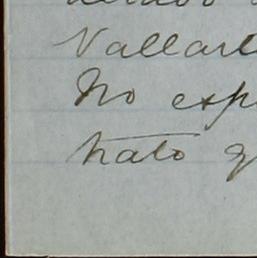 Vallart
No esp
trato q